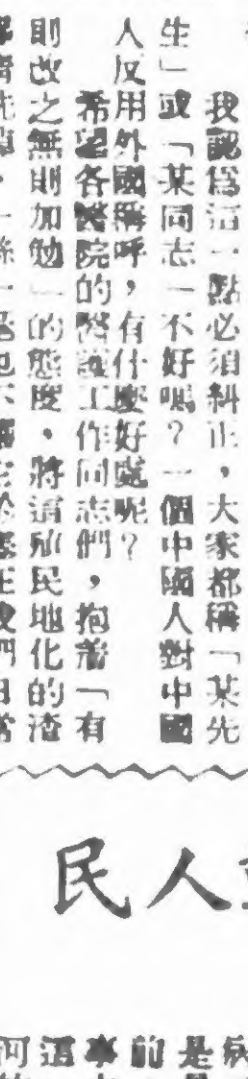 我認爲這一點必須糾正，大家都稱「某先
生」或「某同志」不好嗎？一個中國人對中國
人反用外國稱呼，有什麼好處呢？
希望各醫院的醫護工作同志們，抱着「有
則改之無則加勉」的態度，將這殖民地化的渣
民人
病
是
前
事
這
河